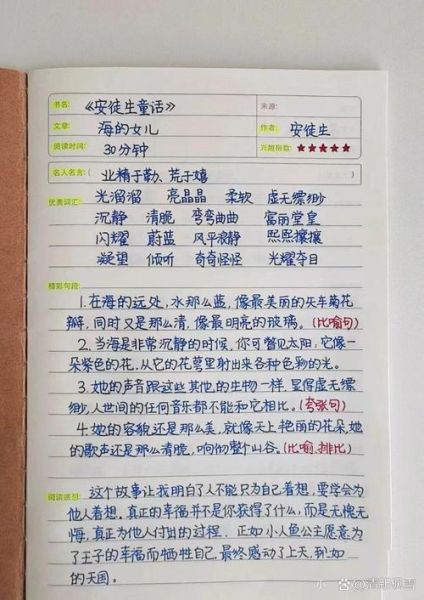 书名: 《安徒生童话》 来源:
文章: 海的女儿 作者: 安徒生
阅读时间: 30分钟 兴趣指数: ★★★★★
名人名言: ( 业精于勤、荒于嬉 )
优美词汇: 光溜溜 亮晶晶 柔软 虚无缥缈
沉静 清脆 弯弯曲曲 富丽堂皇
闪耀 蔚蓝 风平浪静 熙熙攘攘
凝望 倾听 奇奇怪怪 光耀夺目
精彩句段:
1.在海的远处,水那么蓝,像最美丽的矢车菊花
瓣,同时又是那么清,像最明亮的玻璃。(比喻句)
2.当海是非常沉静的时候,你可瞥见太阳:它像一
朵紫色的花,从它的花萼里射出来各种色彩的光。
3.她的声音跟这些其他的生物一样,显得虚无缥
缈,人世间的任何音乐都不能和它相比。(夸张句)
4.她的容貌还是那么美,就像天上艳丽的花朵,她
的歌声还是那么清脆,响彻整个山谷。(比喻、排比)
阅读感想: 这个故事让我明白了人不能只为自己着想,要学会为
他人着想。真正的幸福并不是你获得了什么,而是无愧无
悔,真正为他人付出的过程。正如小人鱼公主愿意为
了王子的幸福而牺牲自己,最终感动了上天,到
的天国。